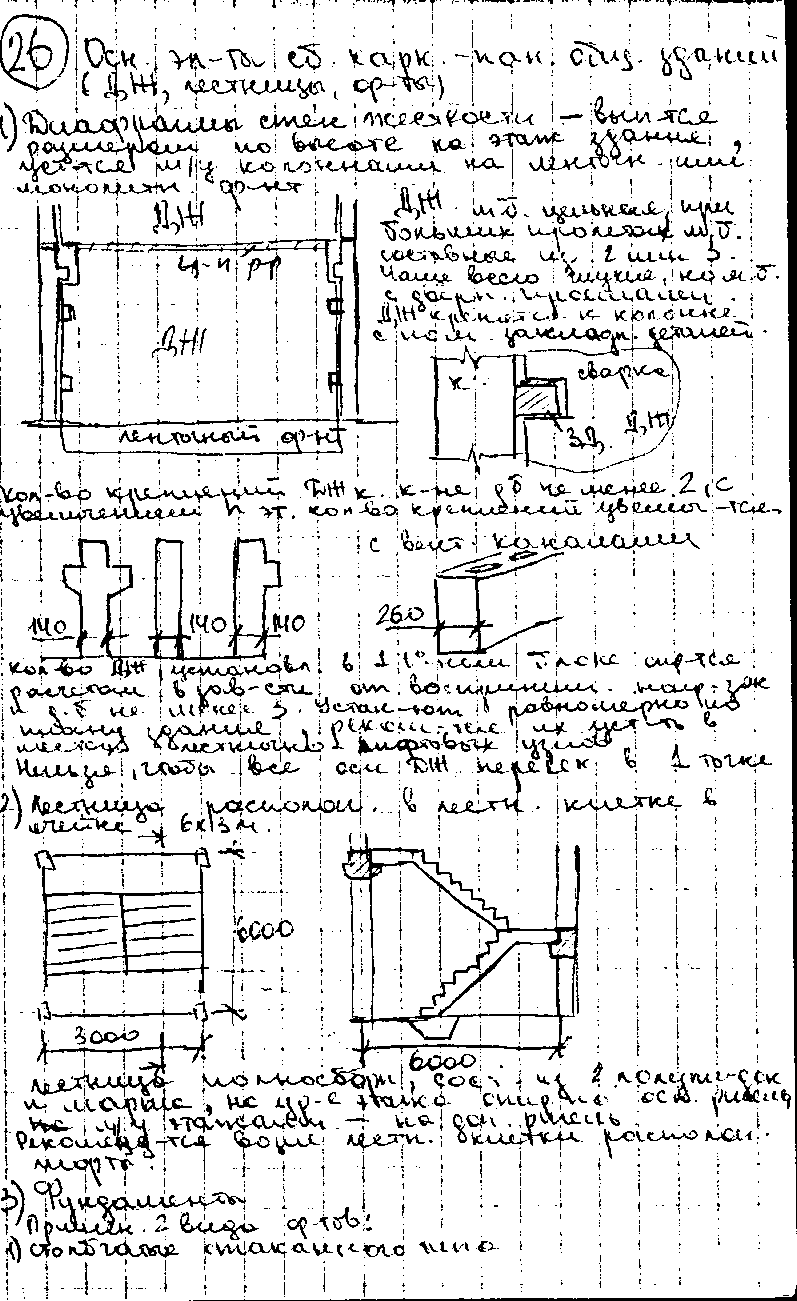 26 Осн. эл-ты сб. карк.-пан. общ. зданий
(ДЖ, лестницы, ф-ты)
1) Диафрагмы стен жесткости – вып-тся
размером по высоте на этаж здания,
уст-тся м/у колоннами на ленточн. или
монолитн. ф-нт
ДЖ
ц-п р-р
ДЖ
ленточный ф-нт
ДЖ м.б. цельная, при
больших пролетах м.б.
составные из 2 или 3.
Чаще всего глухие, но м.б.
с дверн. проемами.
ДЖ крепится к колонне
с пом. закладн. деталей.
К
сварка
ЗД
ДЖ
Кол-во креплений ДЖ к к-не д.б не менее 2, с
увеличением h эт. кол-во креплений увелич-тся.
с вент. каналами
140
140
140
260
кол-во ДЖ, установл. в 1 блоке опр-тся
расчетом в зав-сти от восприним. нагр-зок
и д.б не менее 3. Устан-ют равномерно по
плану здания, реком-тся их уст-ть в
местах лестнично лифтовых узлов
Нельзя, чтобы все оси ДЖ пересек в 1 точке
2) Лестница располож. в лестн. клетке в
ячейке 6х3м.
6000
3000
6000
лестница полносборн, сос. из 2 полуплощ-док
и марша, на ур-е этажа опир. на осн. ригель
на м/у этажами – на доп. ригель
Рекоменд-тся возле лестн. клетки располож.
лифты.
3) Фундаменты
Примен. 2 вида ф-тов:
1) столбчатые стаканного типа